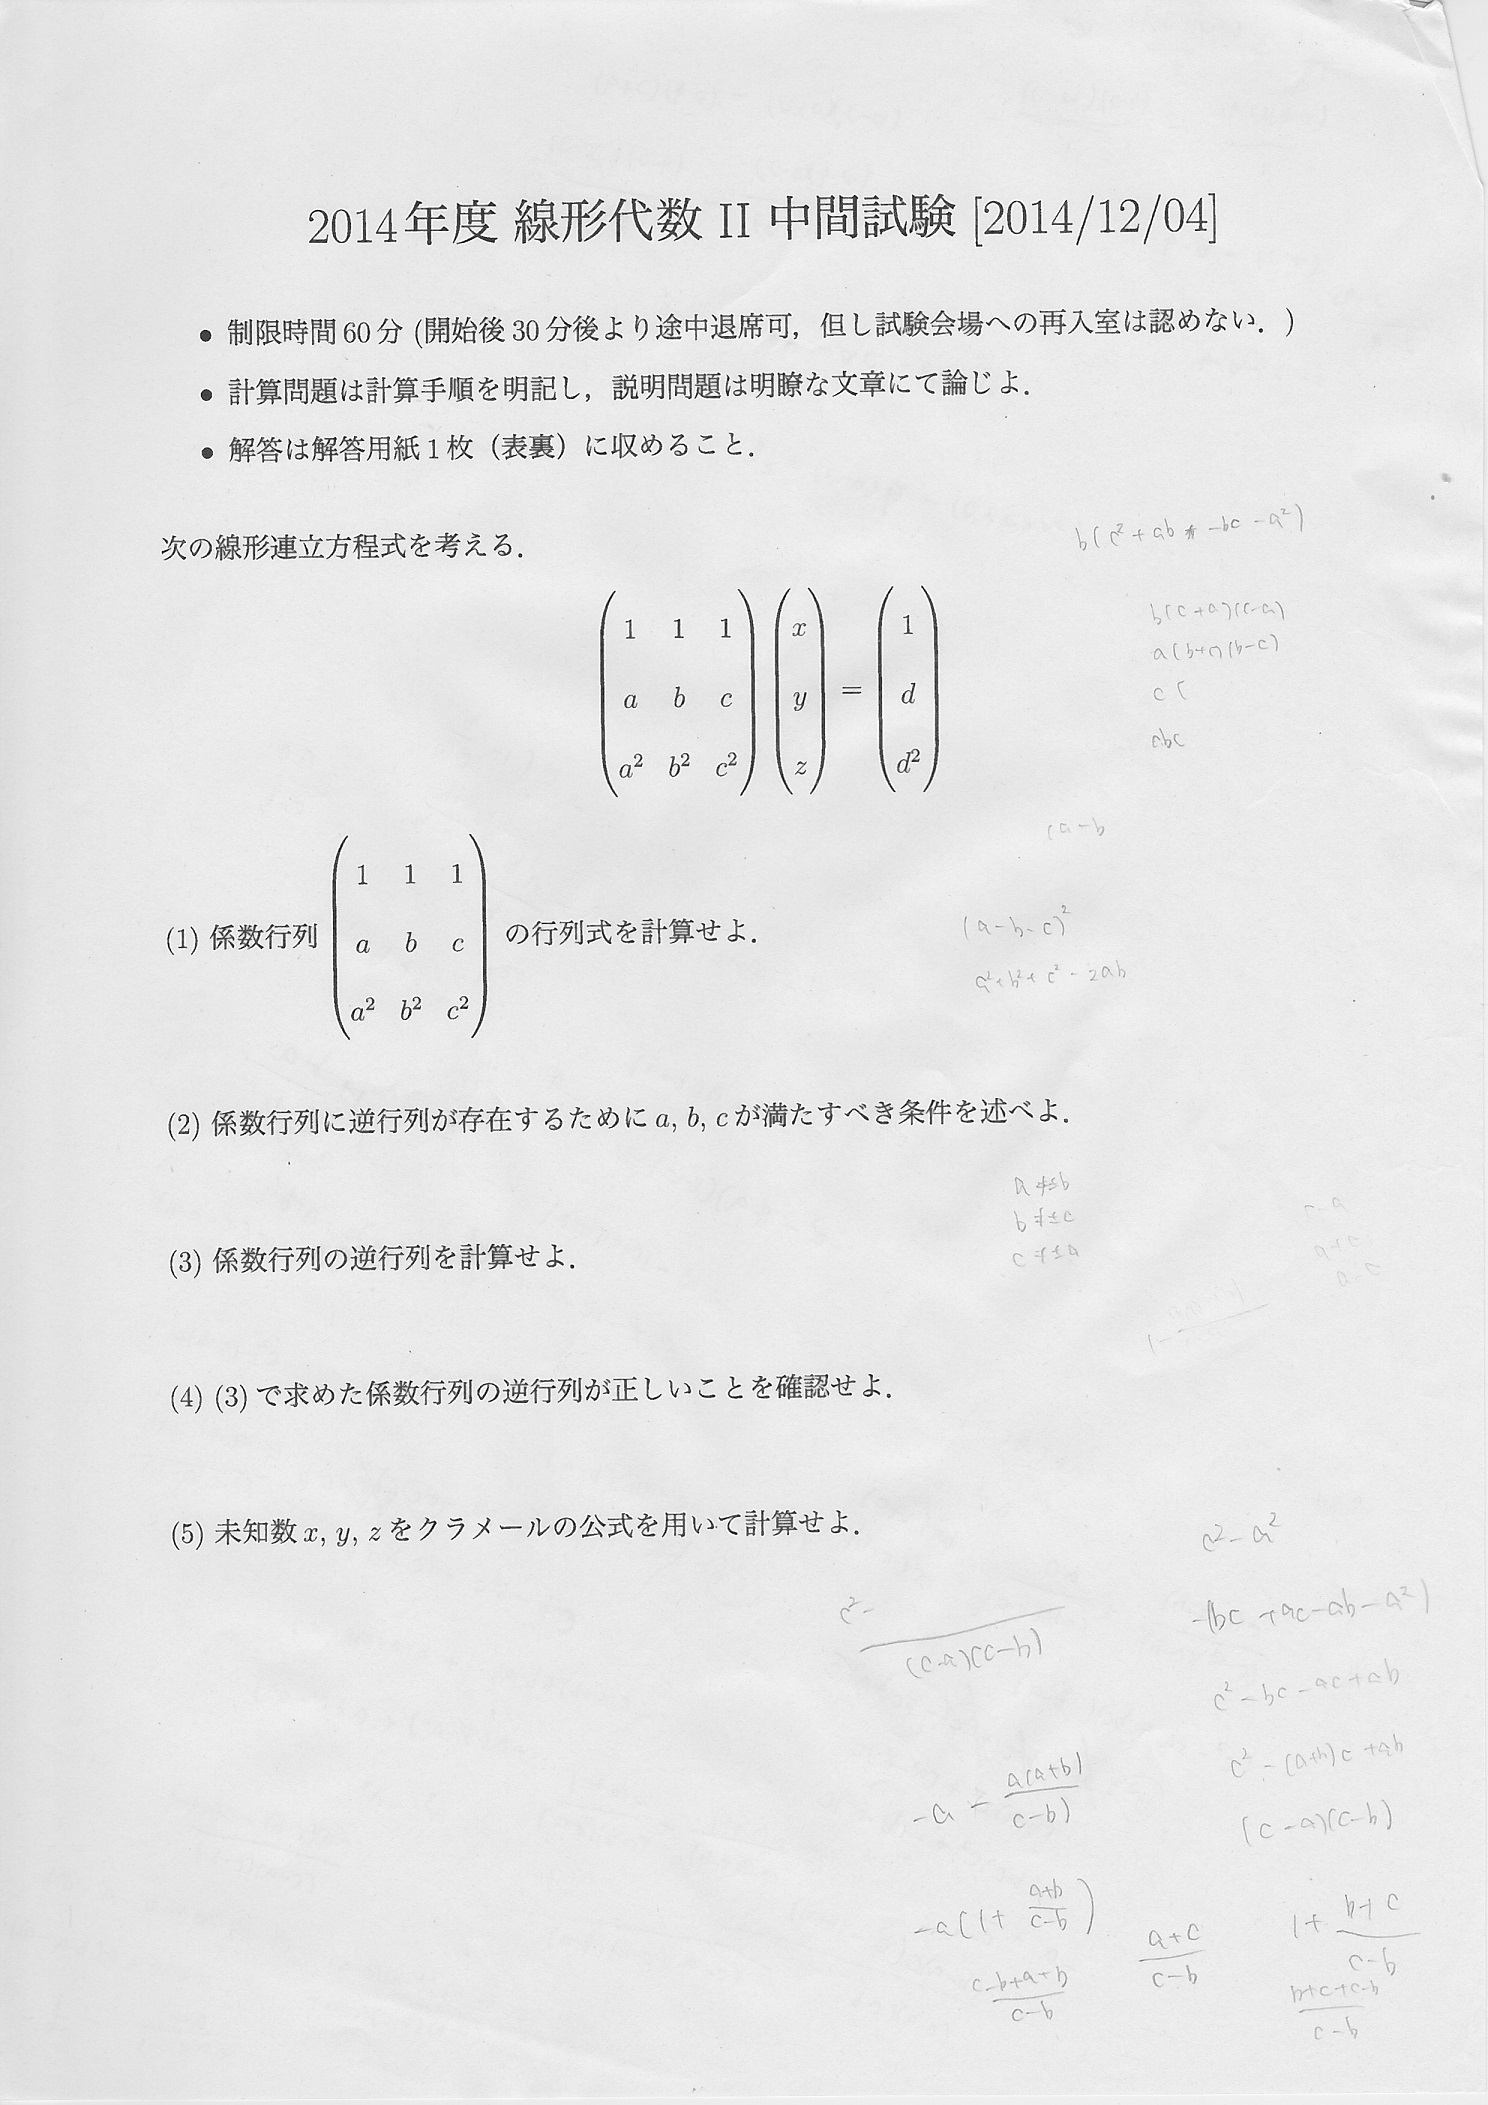 2014年度 線形代数 II 中間試験 [2014/12/04]
• 制限時間 60 分 (開始後 30 分後より途中退席可，但し試験会場への再入室は認めない．)
• 計算問題は計算手順を明記し，説明問題は明瞭な文章にて論じよ．
• 解答は解答用紙 1 枚（表裏）に収めること．
b(c²+ab
-bc -a²)
次の線形連立方程式を考える．
1 1 1 x 1
a b c y = d
a² b² c² z d²
b(c+a)(c-a)
a(b+c)(b-c)
c (
abc
(a-b
1 1 1
(1) 係数行列 a b c の行列式を計算せよ．
a² b² c²
(a-b-c)²
a²+b²+c²-2ab
(2) 係数行列に逆行列が存在するために a, b, c が満たすべき条件を述べよ．
a≠±b
b≠±c
c≠±a
(3) 係数行列の逆行列を計算せよ．
a+c
a-c
(4) (3) で求めた係数行列の逆行列が正しいことを確認せよ．
(5) 未知数 x, y, z をクラメールの公式を用いて計算せよ．
c²-a²
c²-
(c-a)(c-b)
-(bc+ac-ab-a²)
c²-bc-ac+ab
c²-(a+b)c+ab
(c-a)(c-b)
-a - a(a+b)
c-b)
-a(1+ a+b
c-b )
c-b+a+b
c-b
a+c
c-b
1+ b+c
c-b
b+c+c-b
c-b